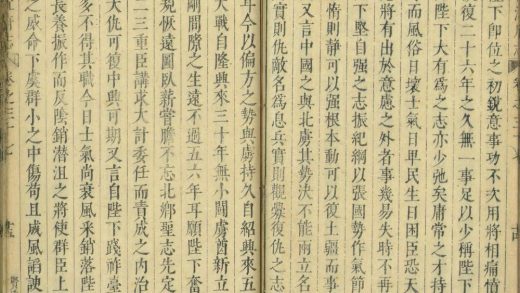 陛下卽位之初銳意事功不次用將相痛憤
復二十六年之久無一事足以少稱陛下
陛下大有爲之志亦少弛矣庸常之才持
而風俗日壞士氣日卑民生日困臣恐天
將有出於意慮之外者事幾易失時不再
下堅自强之志振紀綱以張國勢作氣節
惰則靜可以强根本動可以復土疆而事
又言中國之與北虜其勢決不能兩立名
實則仇敵名爲息兵實則觀釁復仇之志
年今以偏方之勢與虜持久自紹興來五
大戰自隆興來三十年無小鬭虜酋新立
剛間隙之生遠不過五六年耳願陛下奮
規恢遠圖臥薪嘗膽不忘北鄉聖志先定
二三重臣講求大計委任而責成之內治
大仇可復中興可期又言自陛下踐祚臺
多不得其職今日士氣尚衰風采銷落陛
長養振作而反隂銷潛沮之將使群臣上
之威命下虞群小之中傷苟且成風謟諛
卷之三